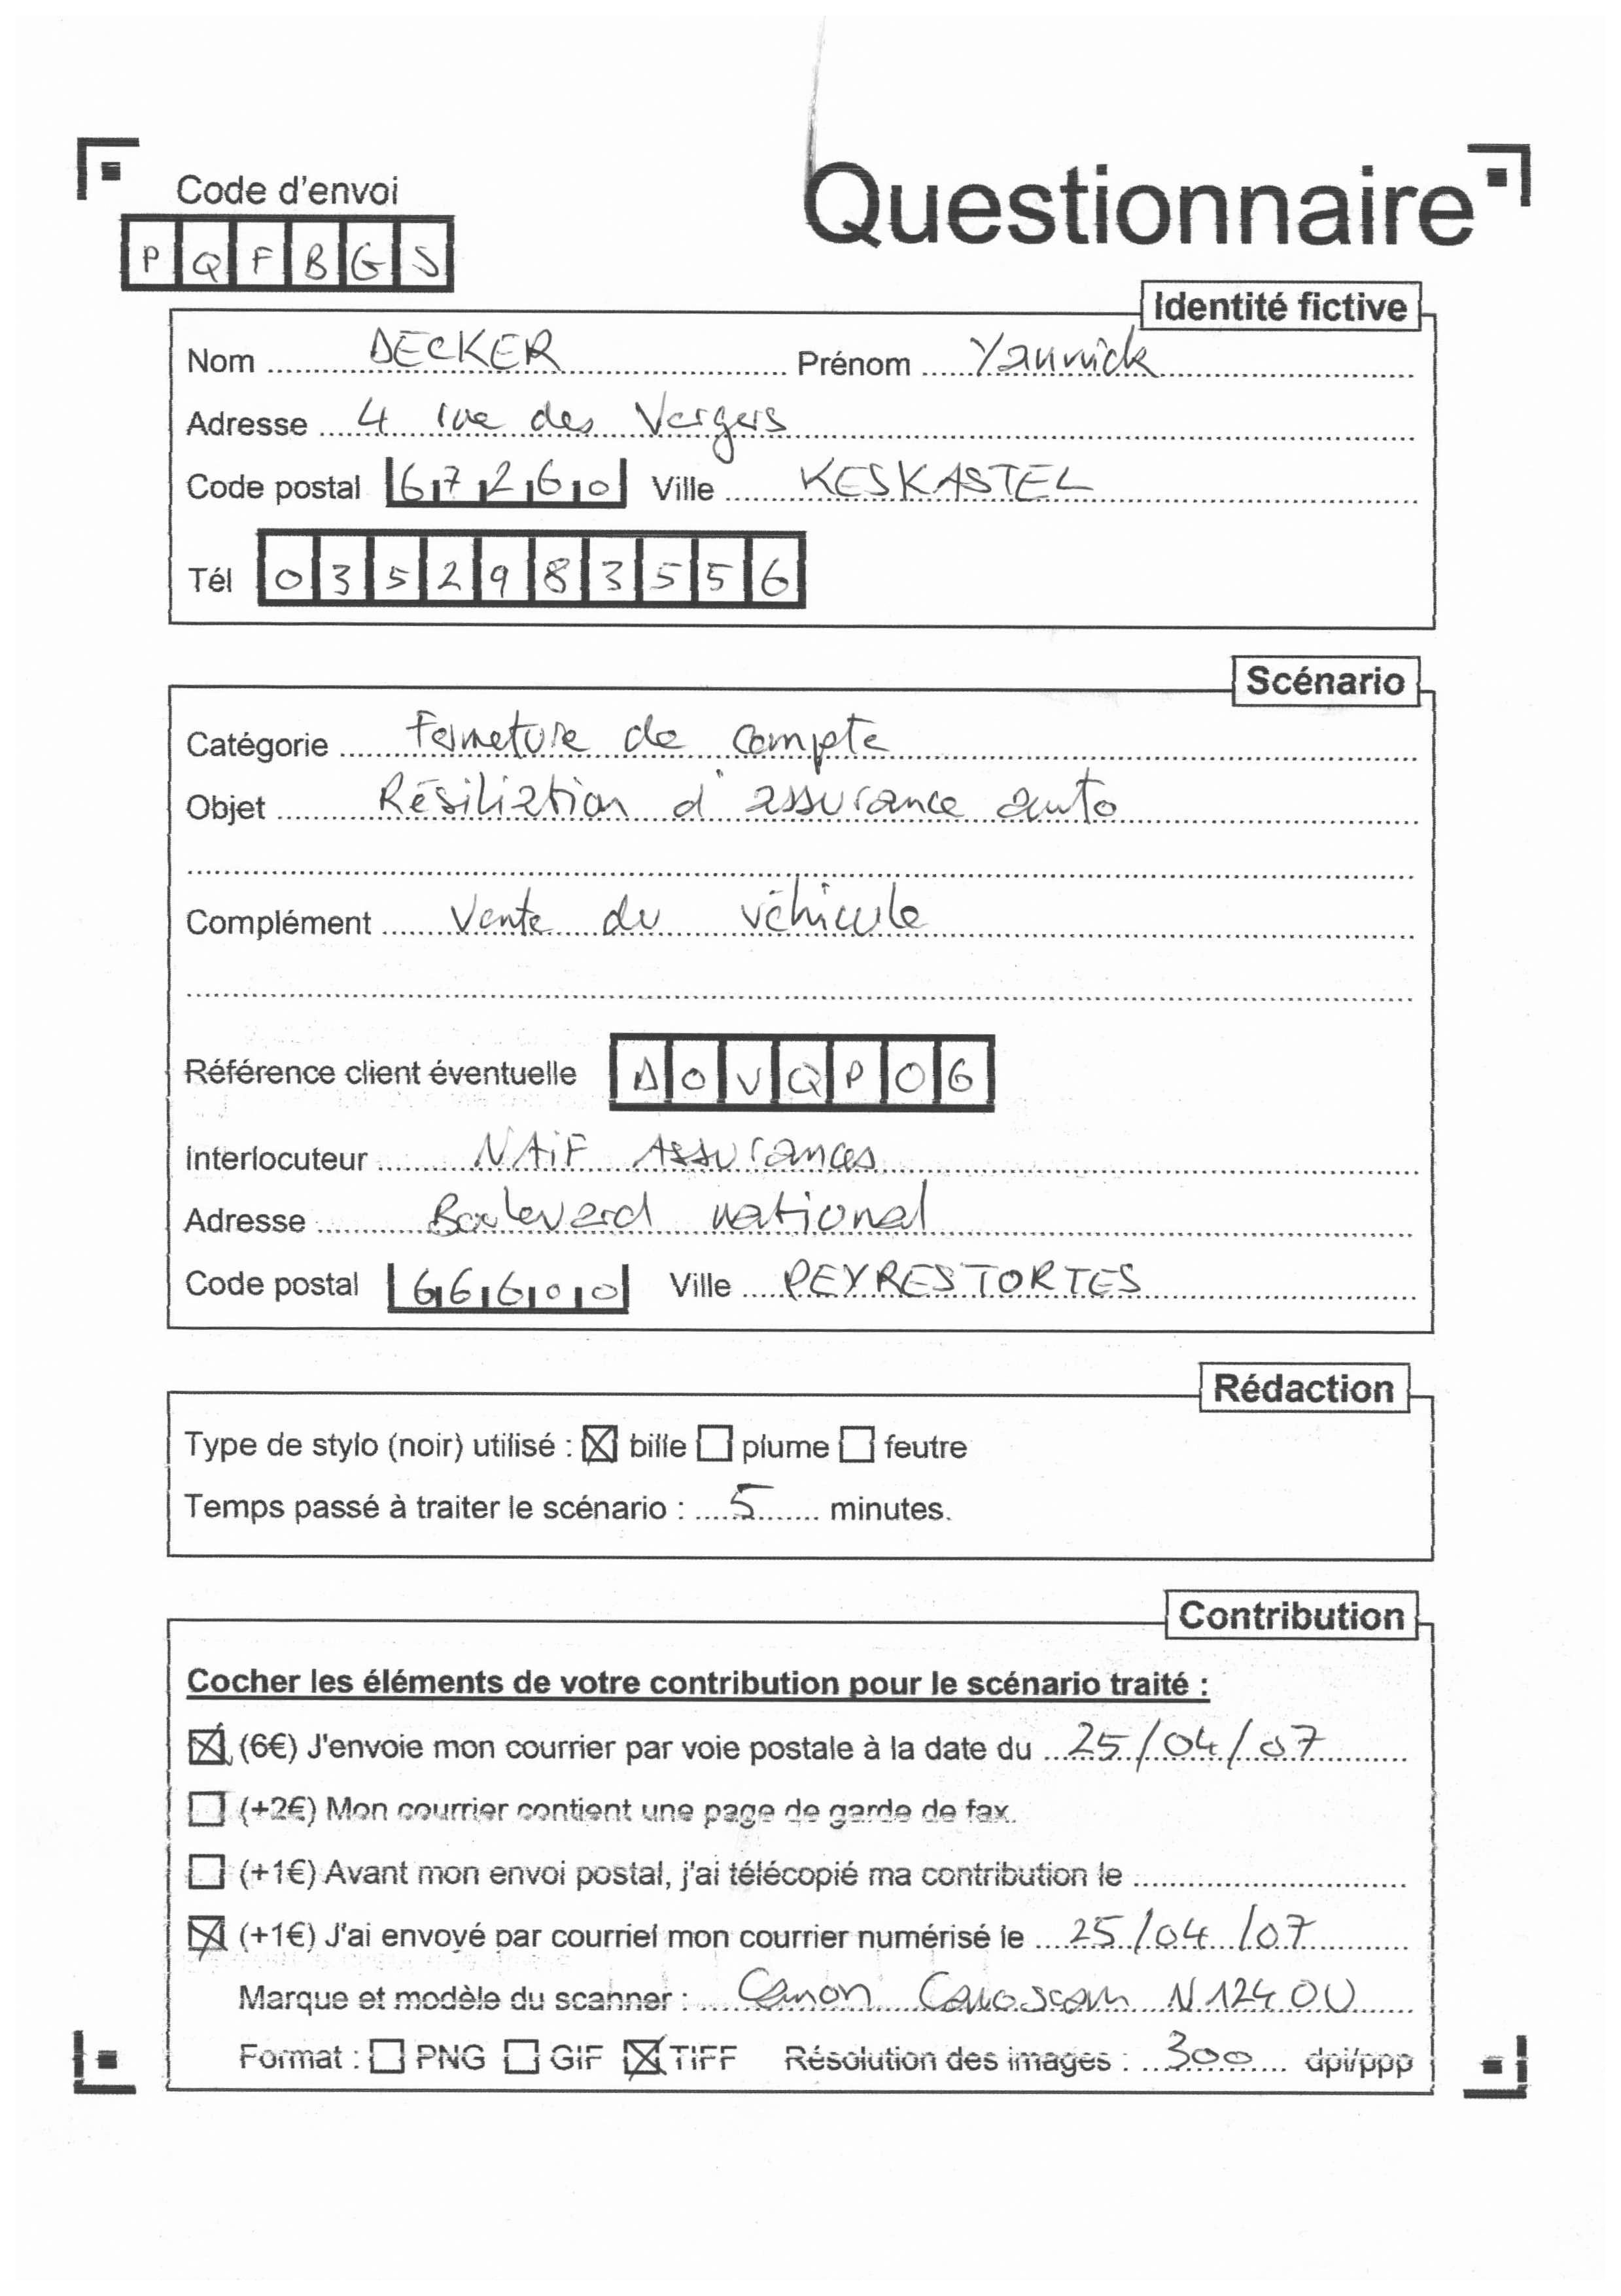 Code d'envoi
Questionnaire
PQFBGS
Identité fictive
Nom DECKER Prénom Yannick
Adresse 4 rue des Vergers
Code postal 67260 Ville KESKASTEL
Tél 0352983556
Scénario
Catégorie Fermeture de compte
Objet Résiliation d'assurance auto
Complément Vente du véhicule
Référence client éventuelle DOVQPO6
Interlocuteur NAiF Assurances
Adresse Boulevard national
Code postal 66600 Ville PEYRESTORTES
Rédaction
Type de stylo (noir) utilisé : ☒ bille ☐ plume ☐ feutre
Temps passé à traiter le scénario : 5 minutes.
Contribution
Cocher les éléments de votre contribution pour le scénario traité :
☒ (6€) J'envoie mon courrier par voie postale à la date du 25/04/07
☐ (+2€) Mon courrier contient une page de garde de fax.
☐ (+1€) Avant mon envoi postal, j'ai télécopié ma contribution le
☒ (+1€) J'ai envoyé par courriel mon courrier numérisé le 25/04/07
Marque et modèle du scanner : Canon Canoscan N1240U
Format : ☐ PNG ☐ GIF ☒ TIFF Résolution des images : 300 dpi/ppp